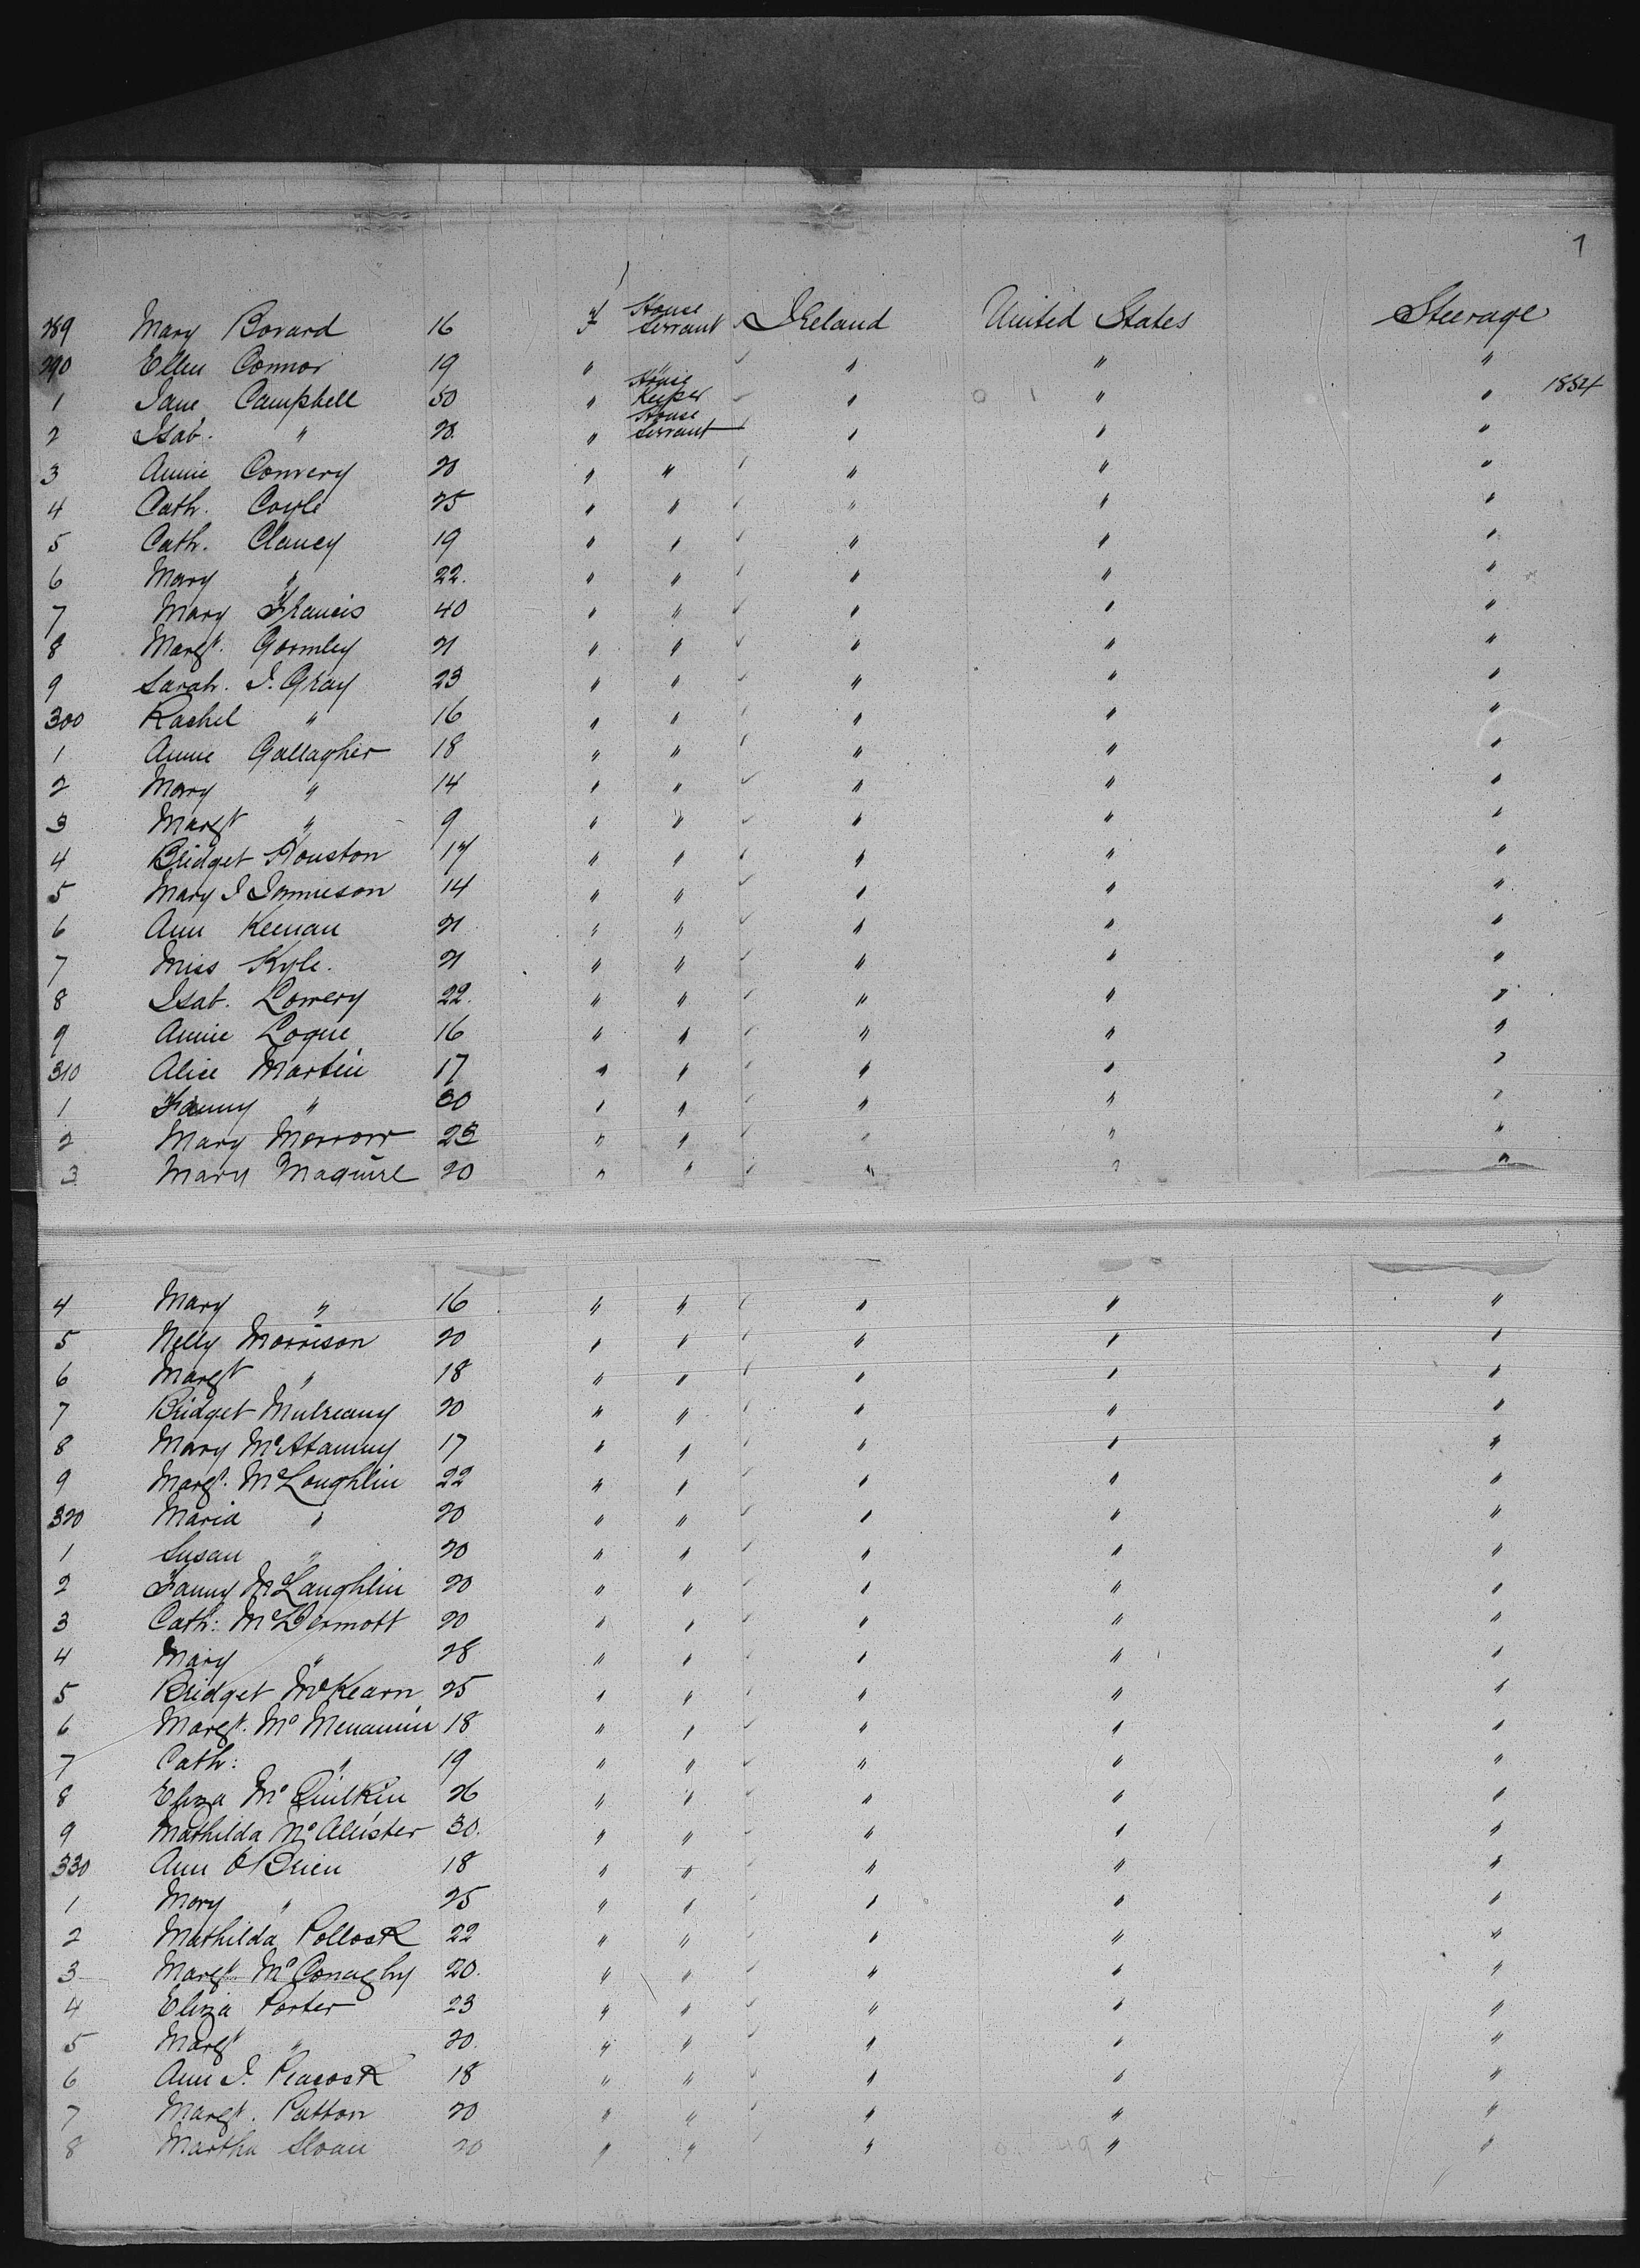 1
289 Mary Bovard 16 f House Servant Ireland United States Steerage
290 Ellen Connor 19 " " " " "
1 Jane Campbell 50 " House Keeper " " " 1884
2 Isab. " 28 " House Servant " " "
3 Annie Convery 20 " " " " "
4 Cath. Coyle 25 " " " " "
5 Cath. Clancy 19 " " " " "
6 Mary " 22. " " " " "
7 Mary Francis 40 " " " " "
8 Margt. Gormley 21 " " " " "
9 Sarah. J. Gray 23 " " " " "
300 Rachel " 16 " " " " "
1 Annie Gallagher 18 " " " " "
2 Mary " 14 " " " " "
3 Margt " 9 " " " " "
4 Bridget Houston 17 " " " " "
5 Mary J Jamieson 14 " " " " "
6 Ann Keenan 21 " " " " "
7 Miss Kyle. 21 " " " " "
8 Isab. Lowery 22. " " " " "
9 Annie Logue 16 " " " " "
310 Alice Martin 17 " " " " "
1 Fanny " 30 " " " " "
2 Mary Morrow 23 " " " " "
3 Mary Maguire 20 " " " " "
4 Mary " 16 " " " " "
5 Nelly Morrison 20 " " " " "
6 Margt " 18 " " " " "
7 Bridget Mulreany 20 " " " " "
8 Mary McAtamny 17 " " " " "
9 Margt. McLoughlin 22 " " " " "
320 Maria " 20 " " " " "
1 Susan " 20 " " " " "
2 Fanny McLaughlin 20 " " " " "
3 Cath: McDermott 20 " " " " "
4 Mary " 28 " " " " "
5 Bridget McKearn 25 " " " " "
6 Margt. McMenamin 18 " " " " "
7 Cath: " 19 " " " " "
8 Eliza McQuilkin 26 " " " " "
9 Mathilda McAllister 30. " " " " "
330 Ann O'Brien 18 " " " " "
1 Mary " 25 " " " " "
2 Mathilda Pollock 22 " " " " "
3 Margt McConaghy 20. " " " " "
4 Eliza Porter 23 " " " " "
5 Margt " 20. " " " " "
6 Ann J. Peacock 18 " " " " "
7 Margt. Patton 20 " " " " "
8 Martha Sloan 20 " " " " "